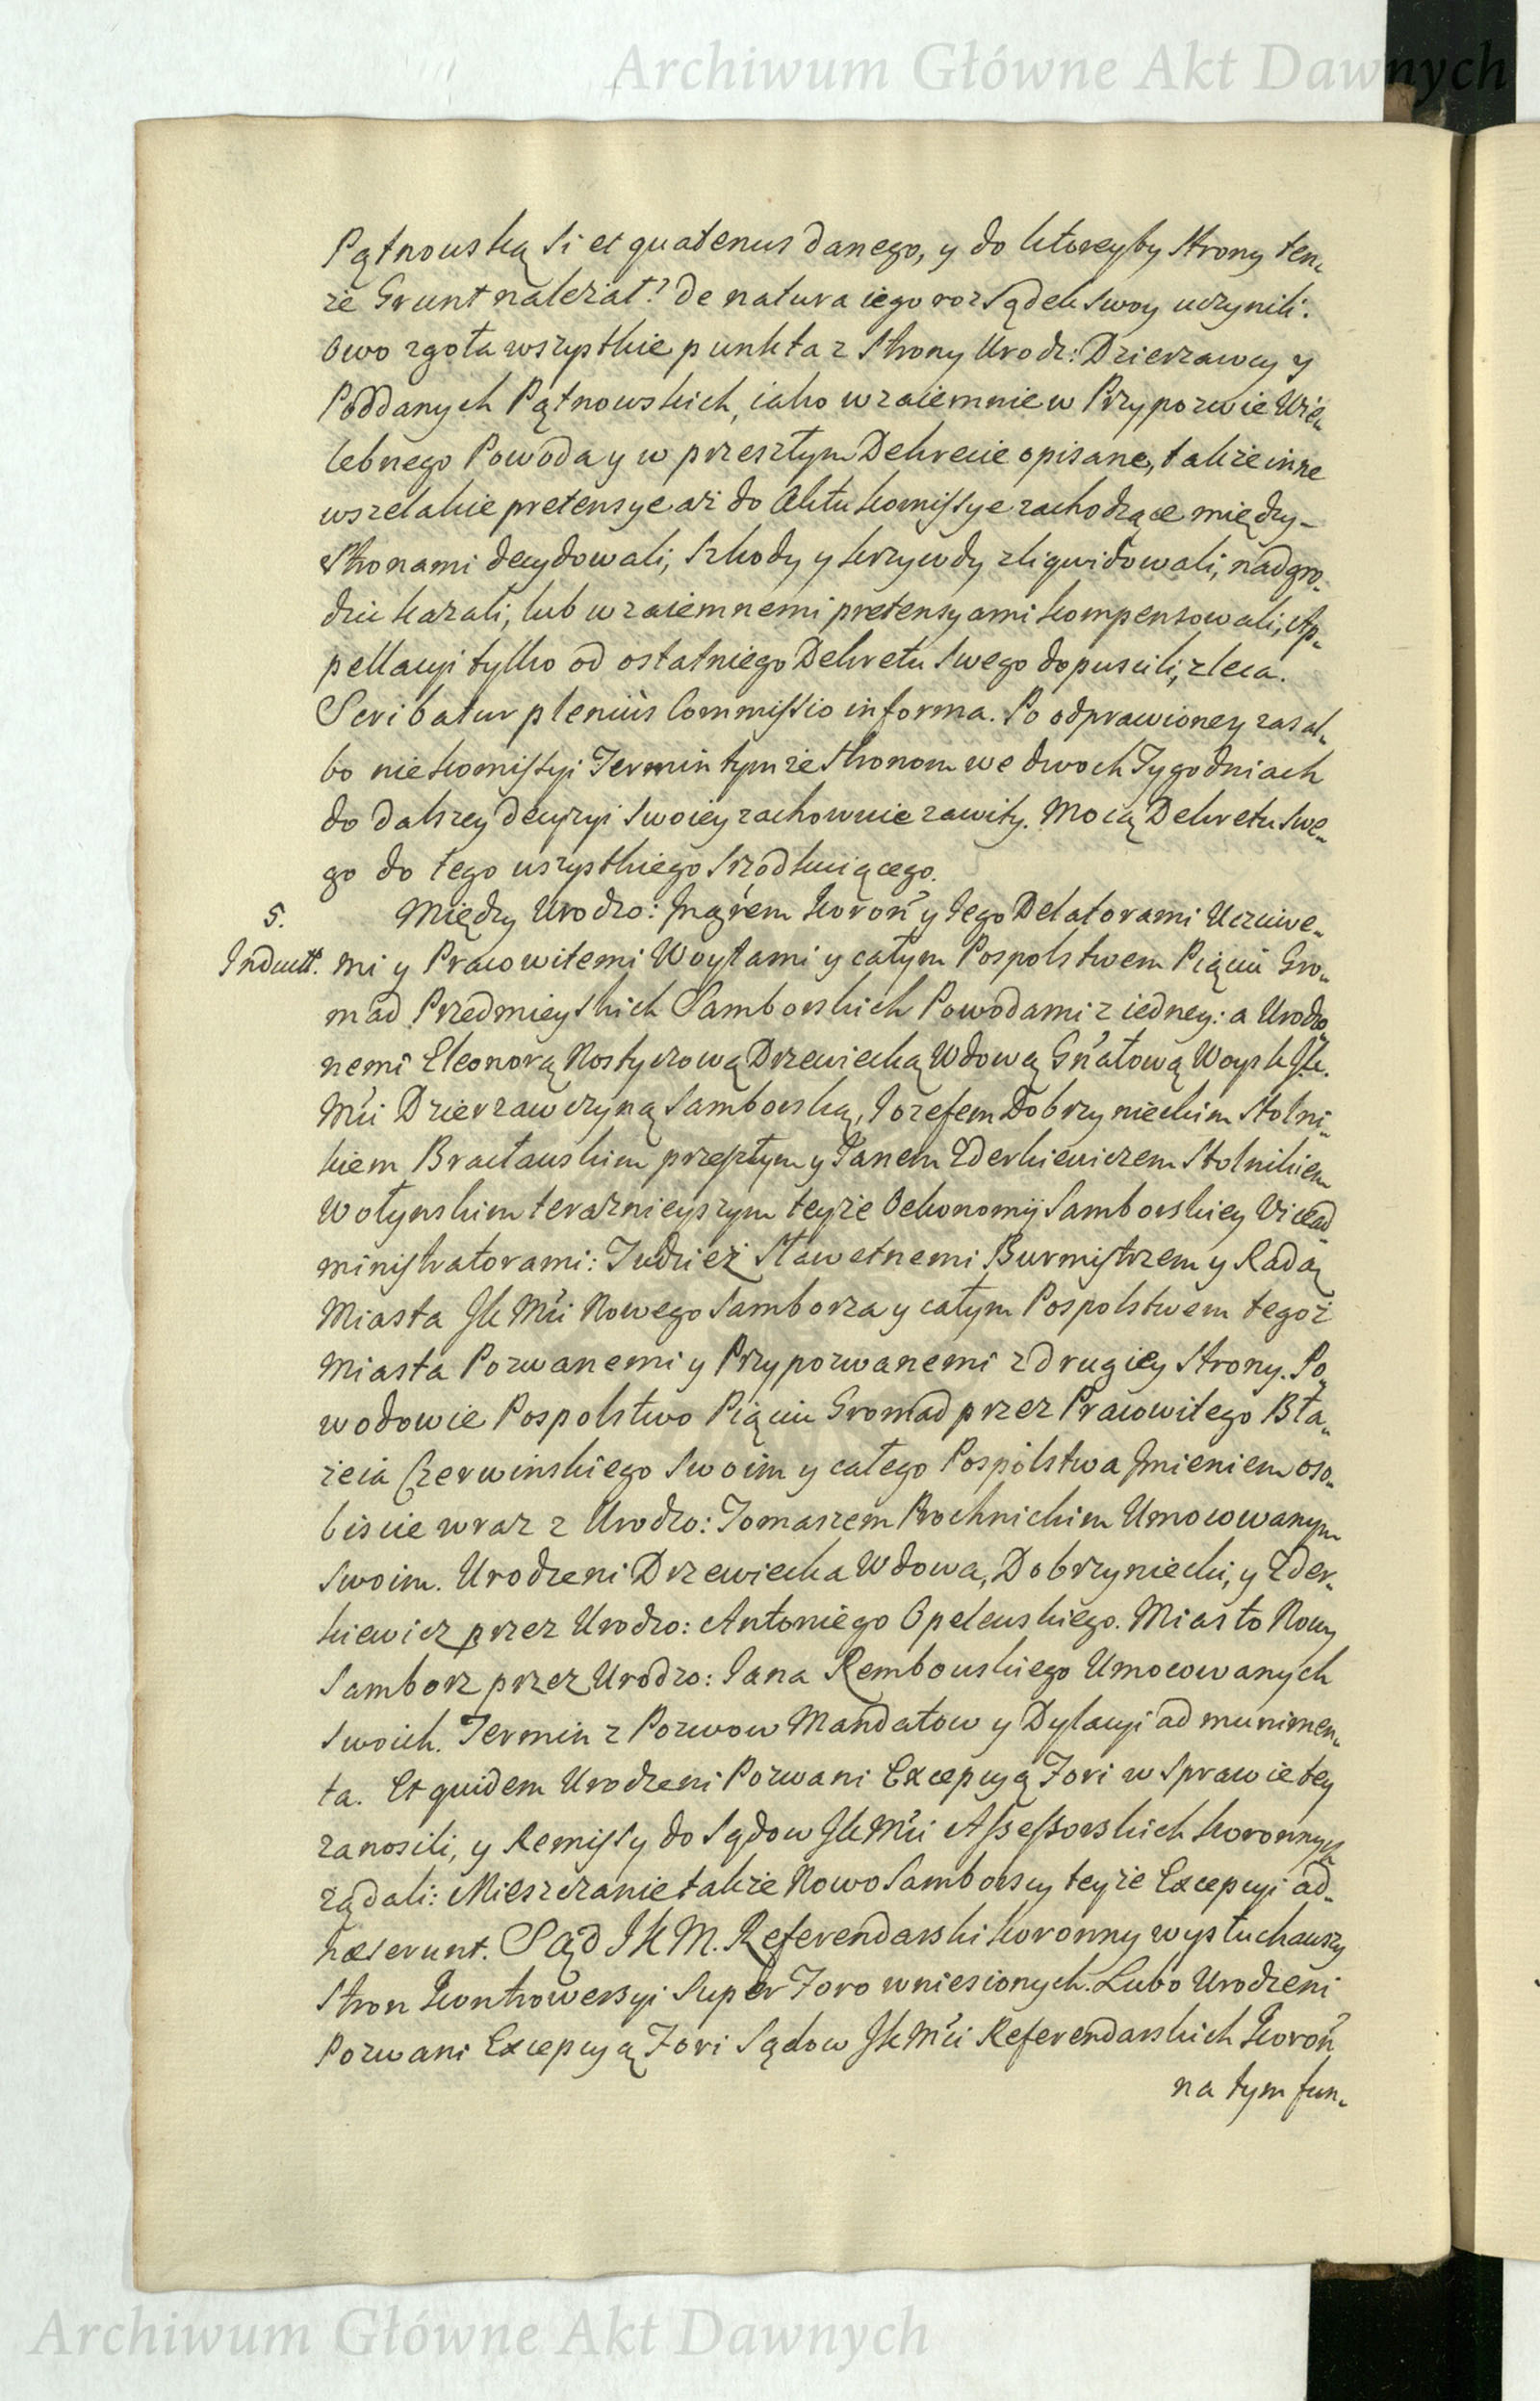 Archiwum Główne Akt Dawnych
Pątnowską si et quatenus danego, y do ktoreyby Strony ten-
że Grunt należał? de natura iego rozsądek swoy uczynili.
Owo zgoła wszystkie punkta z Strony Urodz: Dzierzawcy y
Poddanych Pątnowskich, iako wzaiemnie w Przypozwie Wie-
lebnego Powoda y w przeszłym Dekrecie opisane, także inne
wszelakie pretensye aż do Aktu Komissye zachodzące między-
Stronami decydowali, Szkody y krzywdy zliqwidowali, nadgro-
dzić kazali, lub wzaiemnemi pretensyami kompensowali, Ap-
pellacyi tylko od ostatniego Dekretu swego dopuscili, zleca.
Scribatur pleniùs Commissio in forma. Po odprawioney zas al-
bo nie Komissyi Termin tymże Stronom we dwoch Tygodniach
do dalszey decyzyi swoiey zachowuie zawity. Mocą Dekretu swe-
go do tego wszystkiego srzodkuiącego.
5.
Między Urodzo: Instigrem Koroñ y Iego Delatorami Uczciwe-
Induct. mi y Pracowitemi Woytami y całym Pospolstwem Piąciu Gro-
mad Przedmieyskich Samborskich Powodami z iedney: a Urodzo-
nemi Eleonorą Kostyczową Drzewiecką Wdową Gnałową Woysk JK.
Mći Dzierzawczyną Samborską, Iozefem Dobrzynieckim Stolni-
kiem Bracławskim przeszłym y Ianem Zderkiewiczem Stolnikiem
Wołynskim teraznieyszym teyże Oekonomij Samborskiey Vicead-
ministratorami: Tudzież Sławetnemi Burmistrzem y Radą
Miasta JK Mći Nowego Samborza y całym Pospolstwem tegoż
Miasta Pozwanemi y Przypozwanemi z drugiey Strony. Po-
wodowie Pospolstwo Piąciu Gromad przez Pracowitego Bła-
żeia Czerwinskiego swoim y całego Pospólstwa Imieniem oso-
biscie wraz z Urodzo: Tomaszem Bochnickim Umocowanym
swoim. Urodzeni Drzewiecka Wdowa, Dobrzyniecki, y Zder-
kiewicz przez Urodzo: Antoniego Opelewskiego. Miasto Nowy
Samborz przez Urodzo: Iana Rembowskiego Umocowanych
swoich. Termin z Pozwow Mandatow y Dylacyi ad munimen-
ta. Et quidem Urodzeni Pozwani Excepcyą Fori w Sprawie tey
zanosili, y Remissy do Sądow JK Mći Assessorskich Koronnych
ządali: Mieszczanie także Nowo Samborscy teyże Excepcyi ad-
hæserunt. Sąd JKM. Referendarski Koronny wysłuchawszy
Stron Kontrowersyi Super Foro wniesionych. Lubo Urodzeni
Pozwani Excepcyą Fori Sądow JK Mći Referendarskich Koroñ
na tym fun-
Archiwum Główne Akt Dawnych